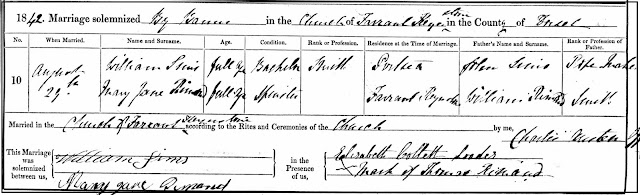 1842. Marriage solemnized By Banns in the Church of Tarrant Keynstone in the County of Dorset
No. When Married. Name and Surname. Age. Condition. Rank or Profession. Residence at the Time of Marriage. Father's Name and Surname. Rank or Profession of Father.
10 August William Sims full age Bachelor Smith John Sims Pipe Maker
29th Mary Jane full age Spinster Tarrant Keynstone William Smith
Married in the Church of Tarrant Keynstone according to the Rites and Ceremonies of the Church by me, Charles
This Marriage was solemnized between us, William Sims in the Presence of us, Elisabeth
Mary Jane Mark of Thomas